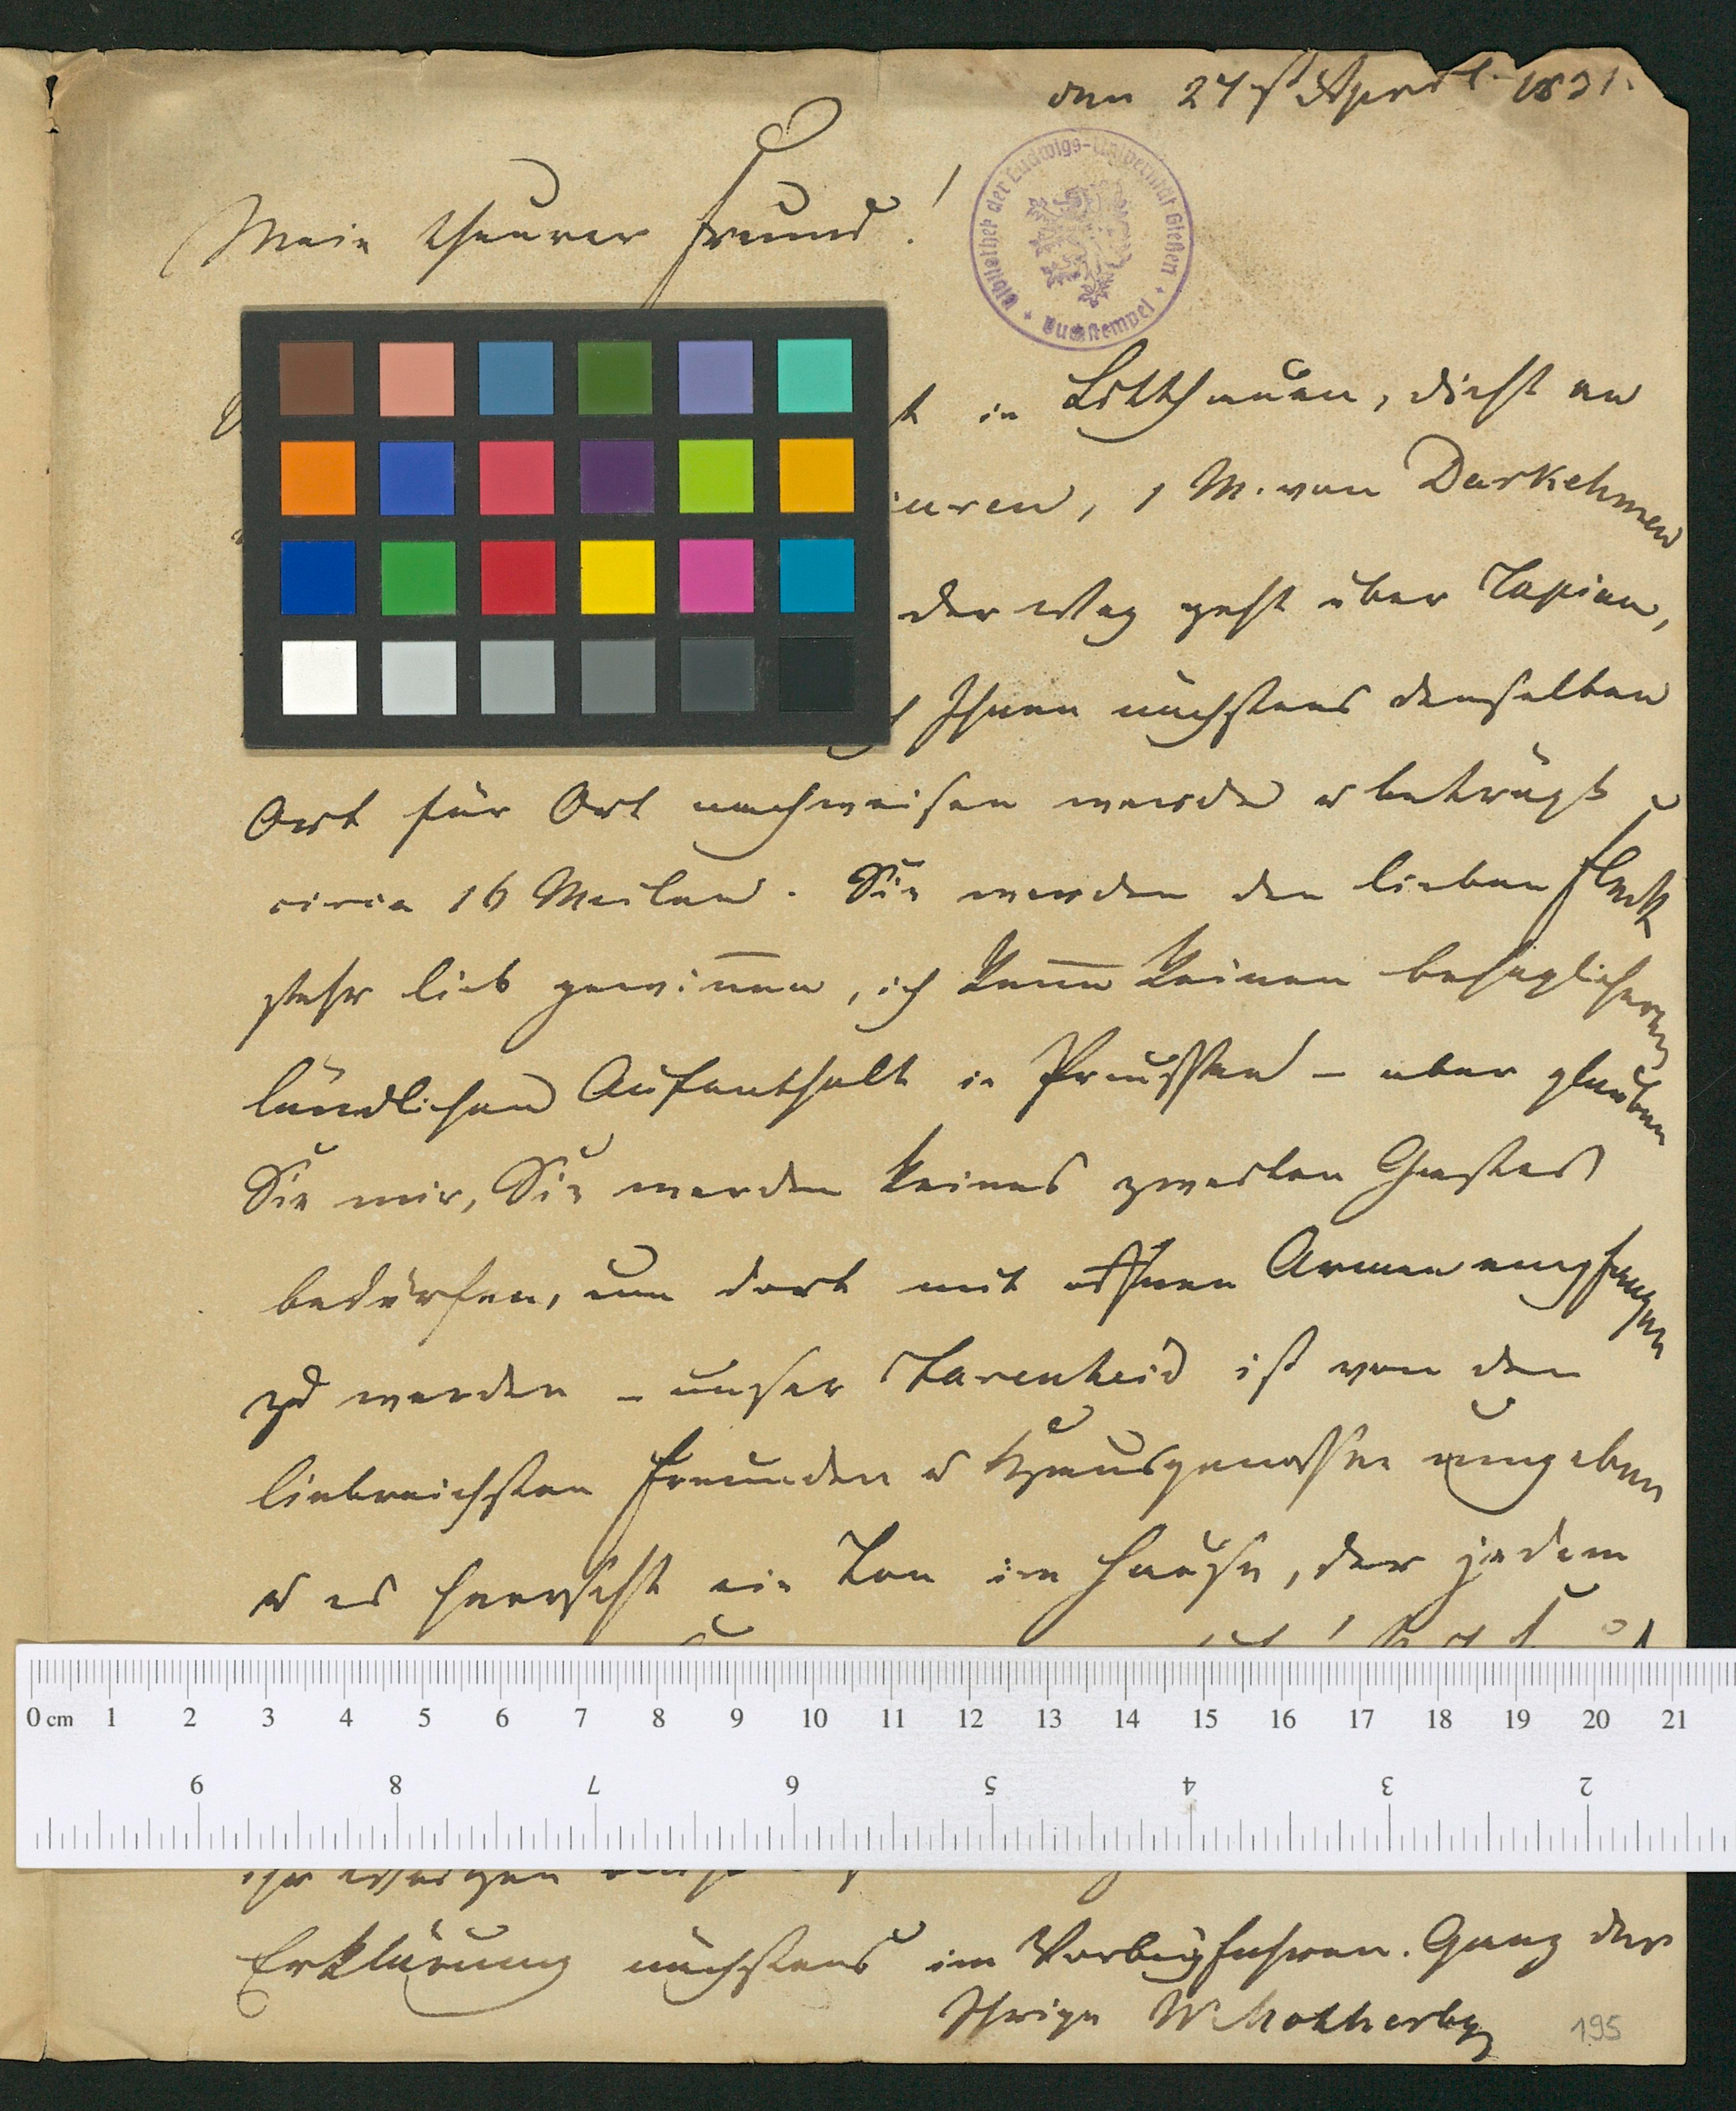 den 24st April 1831.
Mein theurer Freund!
Bibliothek der Ludwigs-Universität Gießen
Buchstempel
in Litthauen, dicht an
uren, 1 M. von Darkehmen
der Weg geht über Tapiau,
Ihnen nächstens denselben
Ort für Ort nachweisen werde u beträgt
circa 16 Meilen. Sie werden den lieben Fleck
sehr lieb gewinnen, ich kenne keinen behaglicheren
ländlichen Aufenthalt in Preussen – aber glauben
Sie mir, Sie werden keines zweiten Gastes
bedürfen, um dort mit offnen Armen empfangen
zu werden – unser Farenheid ist von den
liebreichsten Freunden u Hausgenossen umgeben
u es herrscht ein Ton im Hause, der jedem
0 cm 1 2 3 4 5 6 7 8 9 10 11 12 13 14 15 16 17 18 19 20 21
9 8 7 6 5 4 3 2
Erklärung nächstens im Vorbeyfahren. Ganz der
Ihrige W Motherby
195